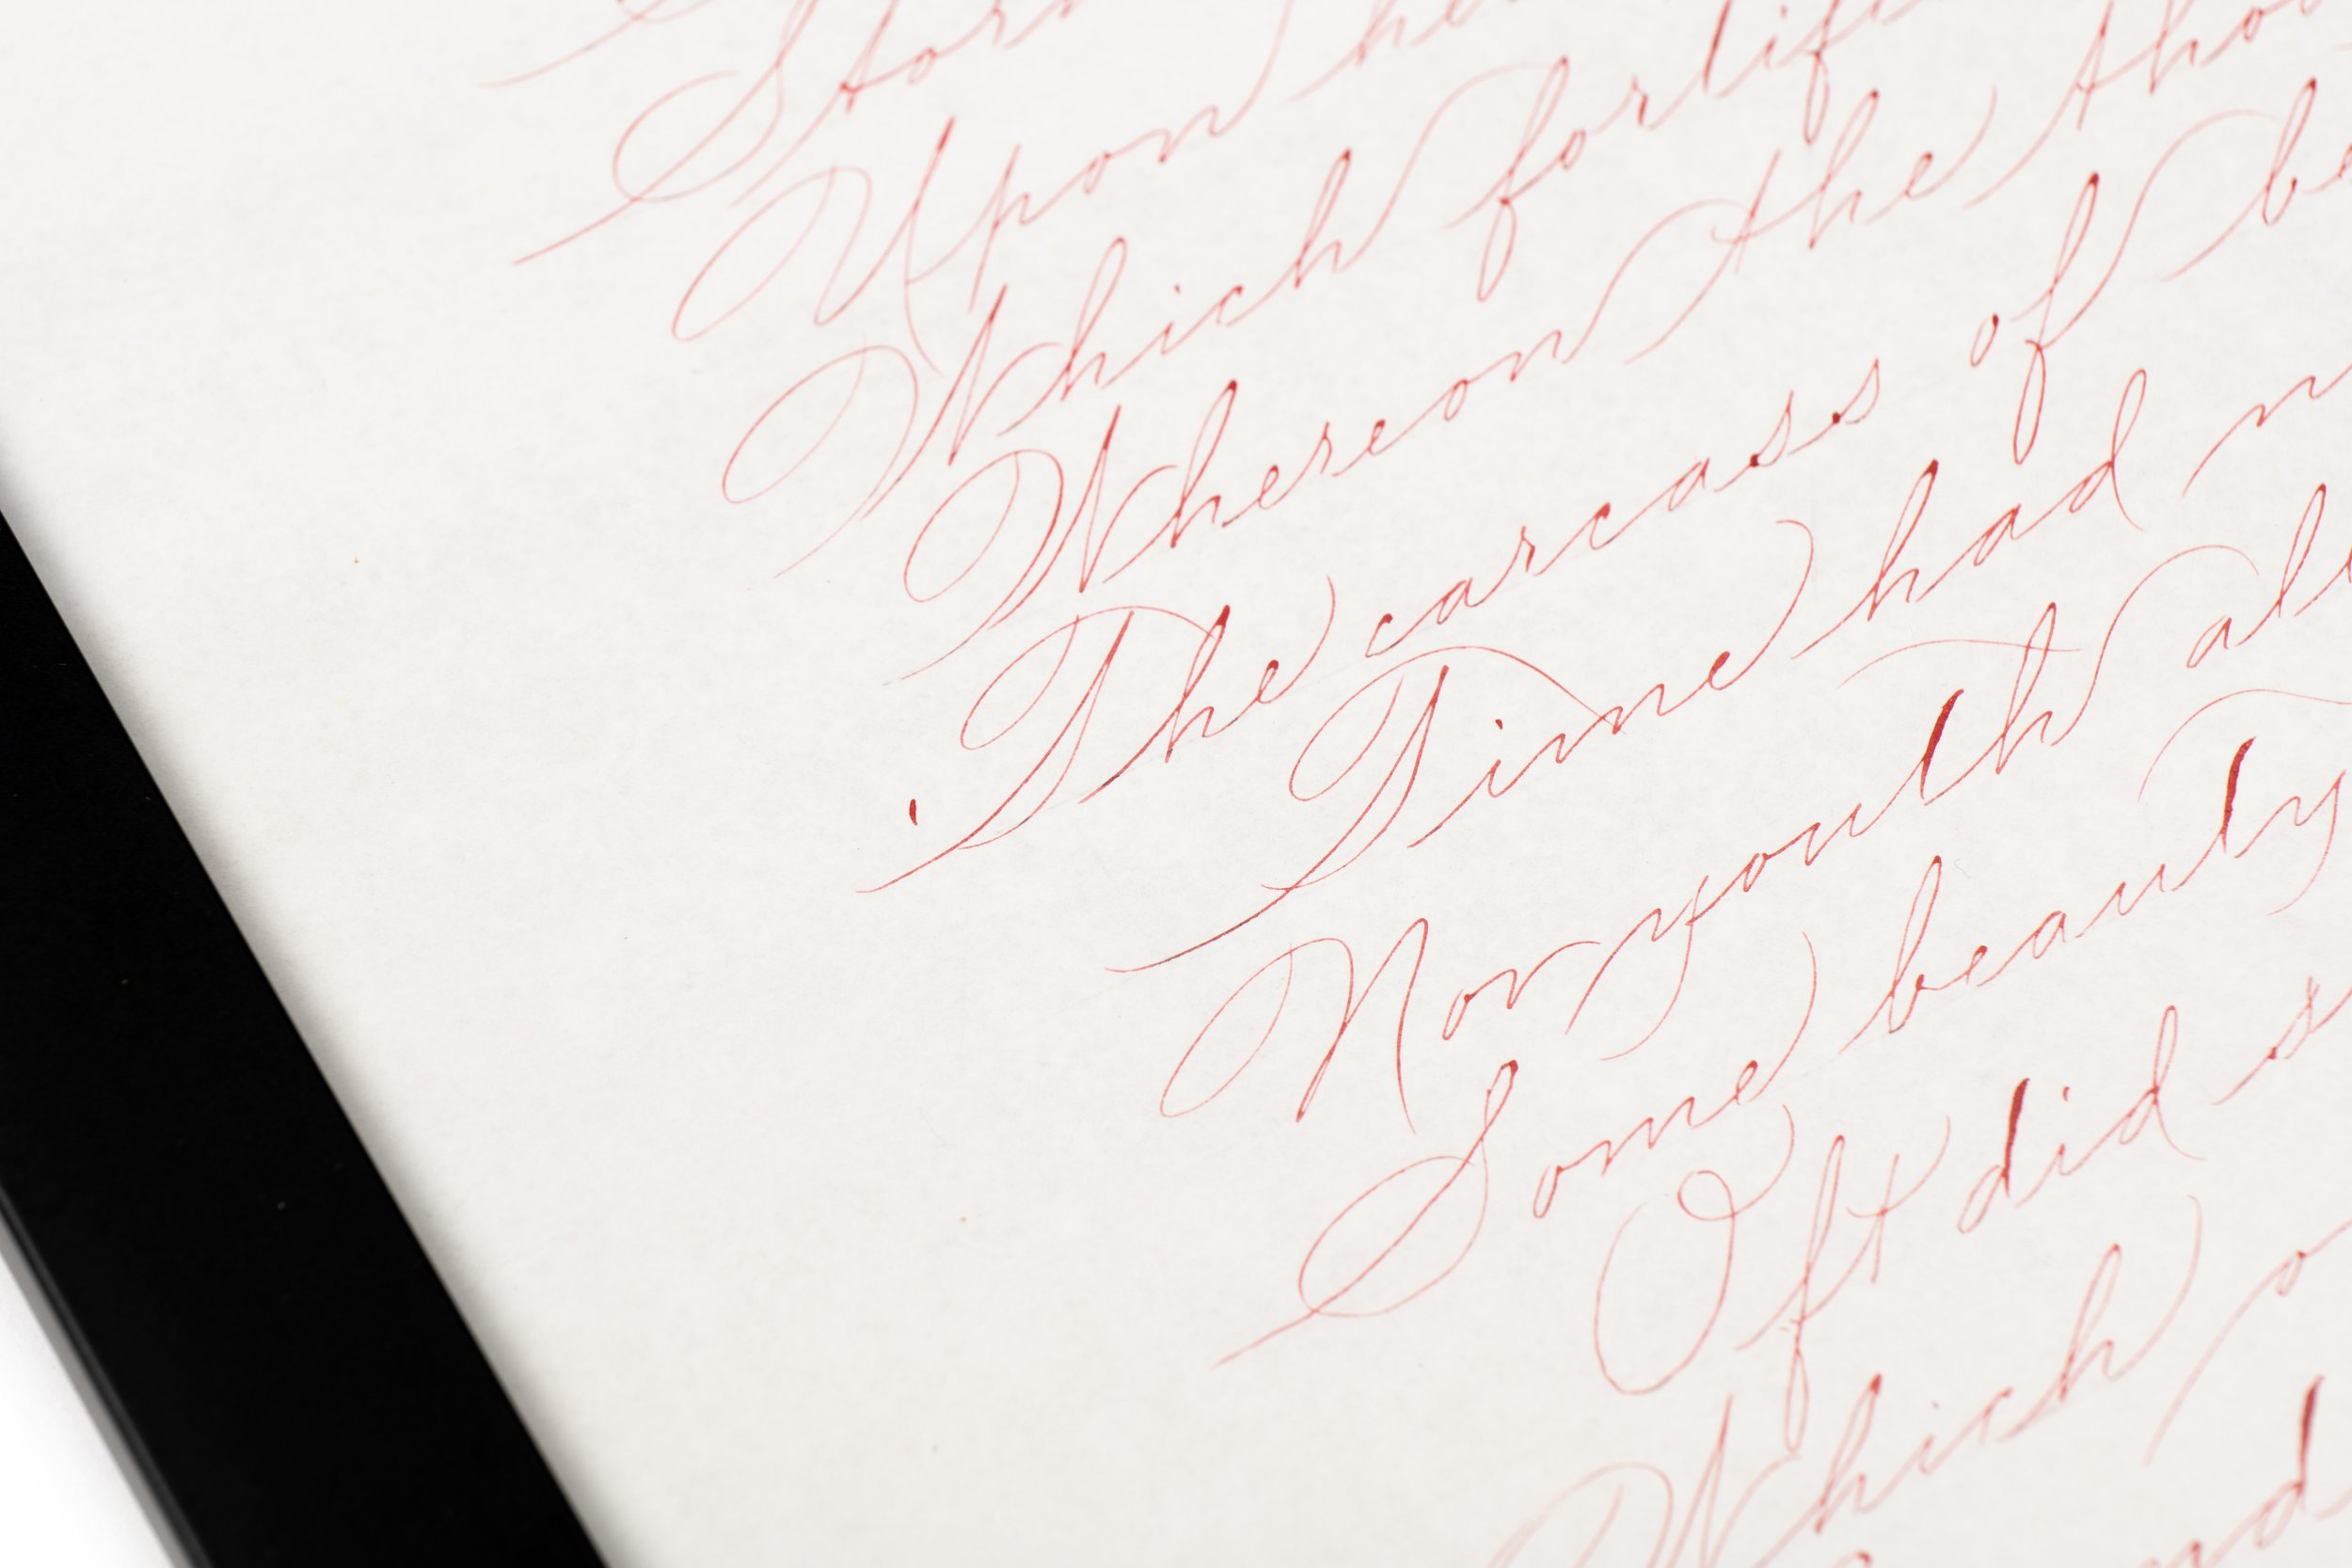 Stor
Upon he
Which fortif
Whereon the tho
The carcass of be
Time had n
Nor youth al
Some beauty
Oft did s
Which o